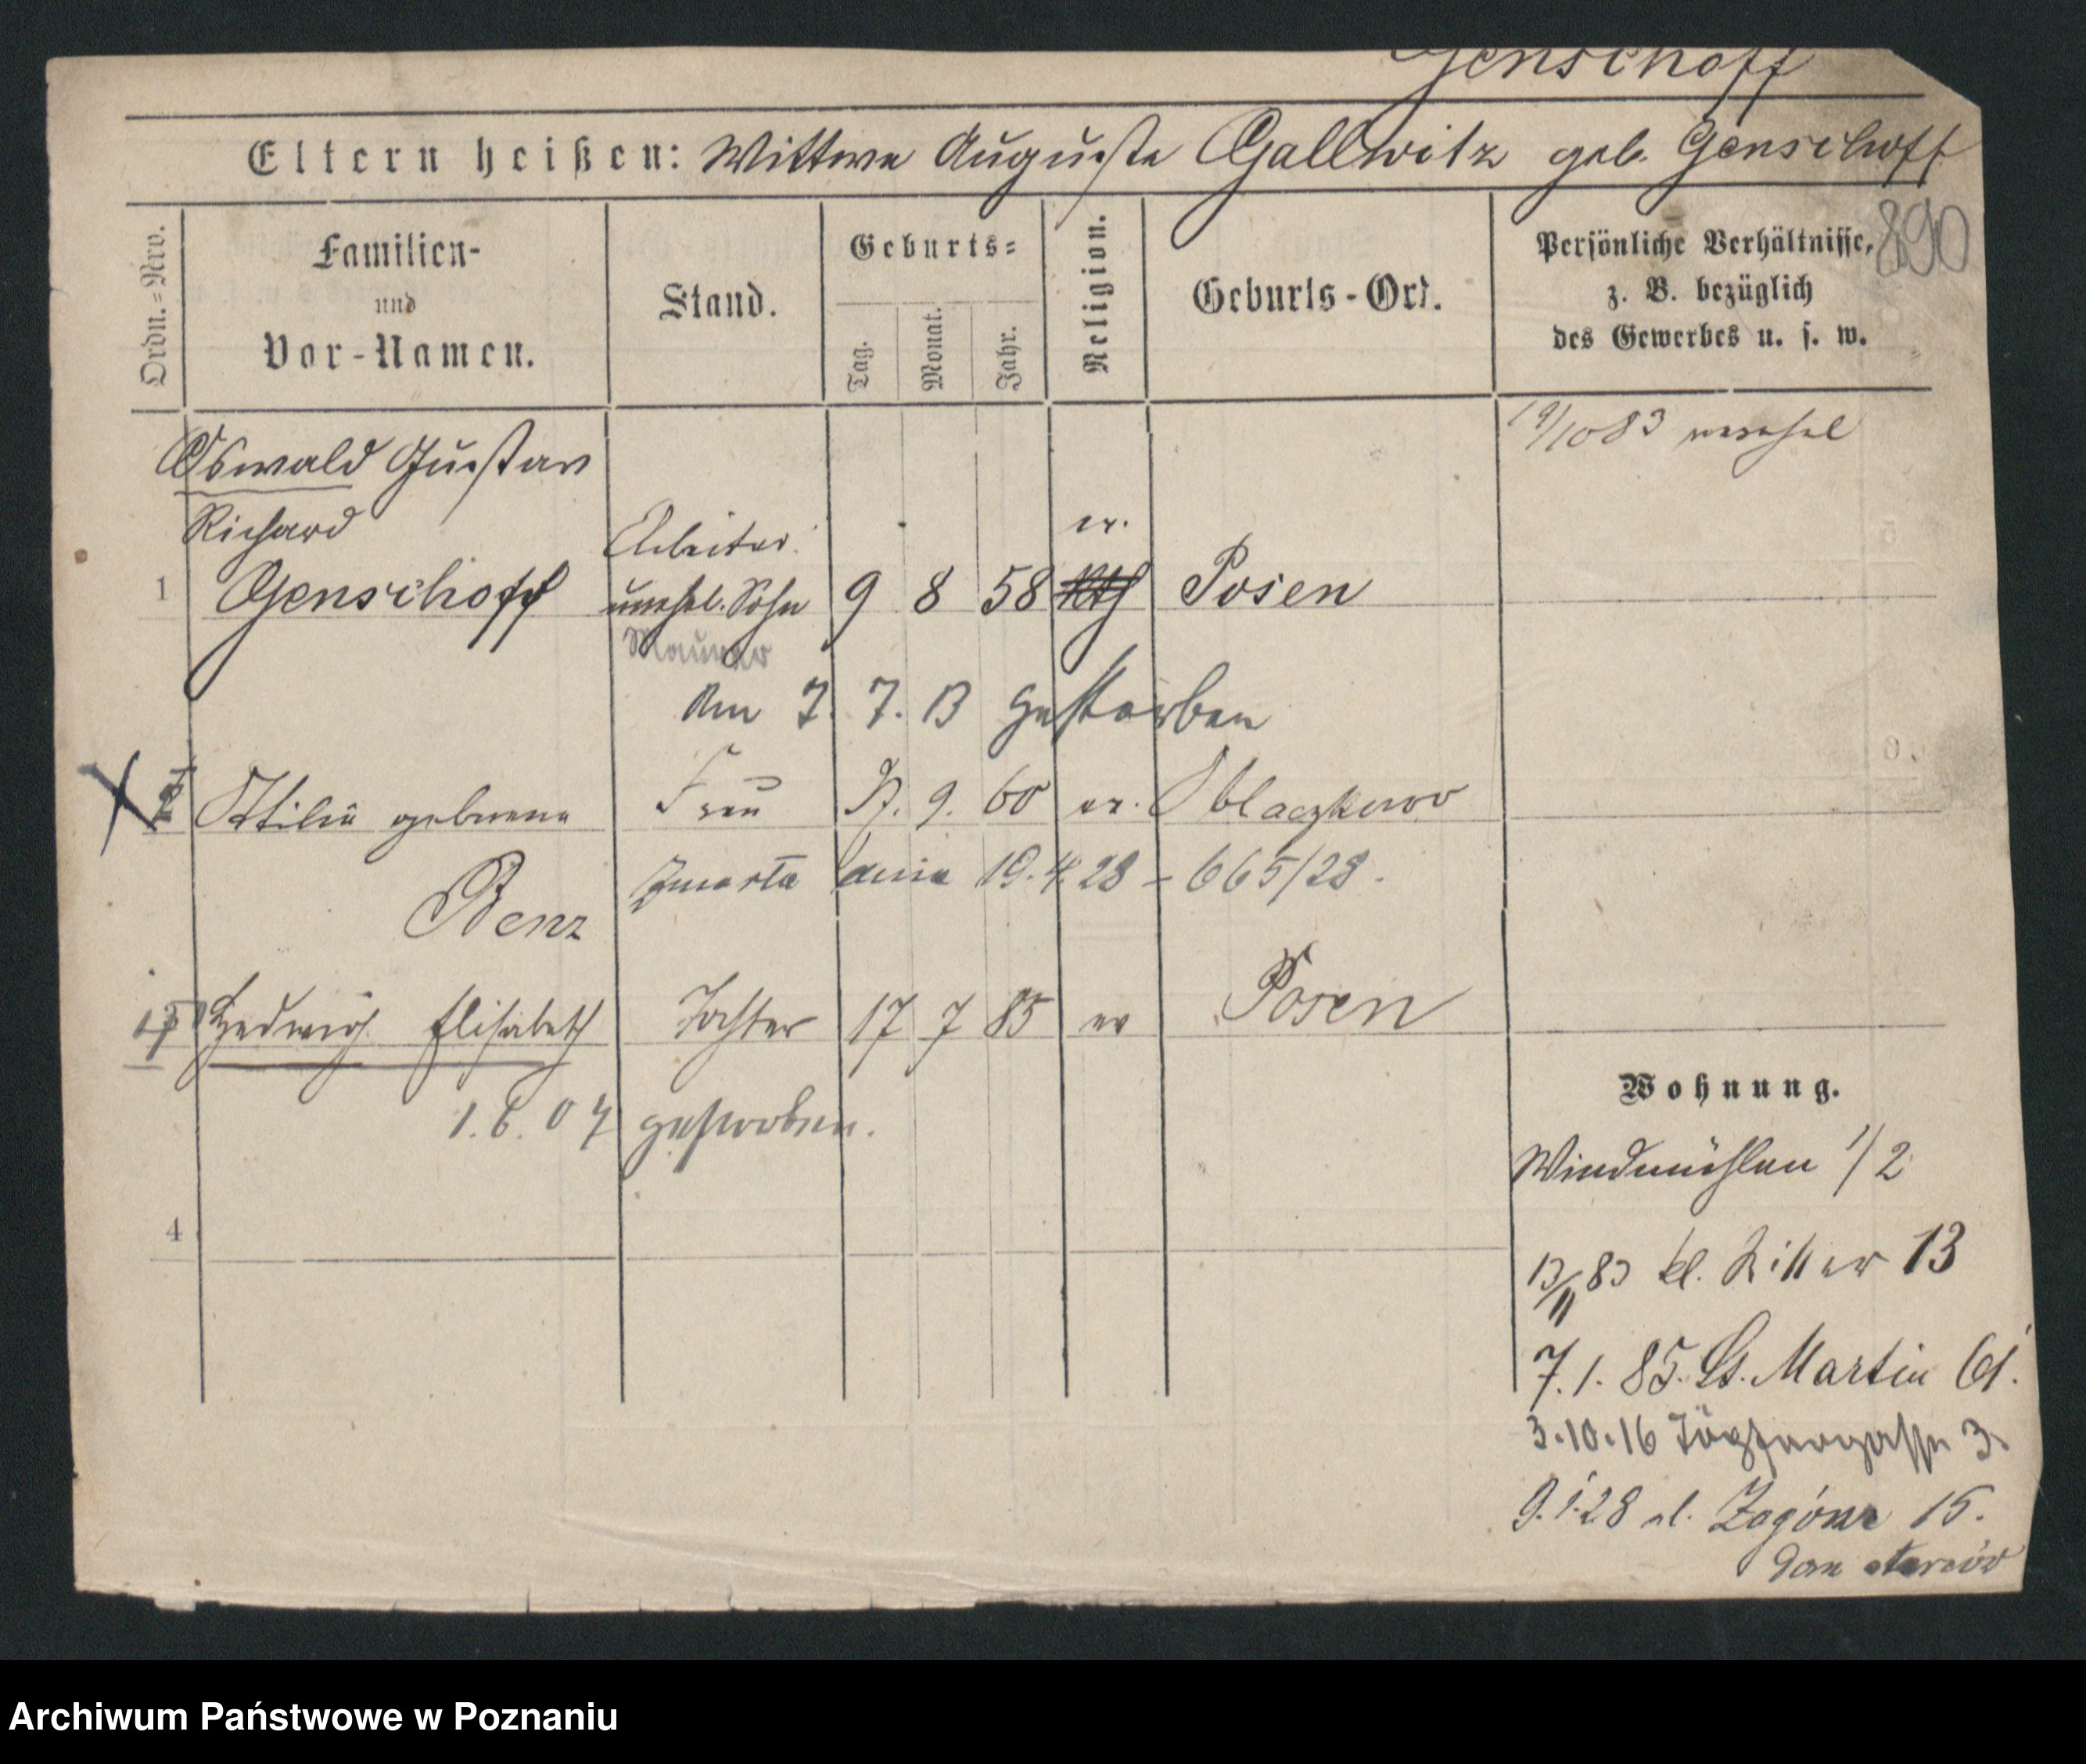 Genschoff
Eltern heißen: Wittwe Auguste Gallwitz geb. Genschoff
890
Ordn.=Nro.
Familien-
und
Vor-Namen.
Stand.
Geburts=
Tag.
Monat.
Jahr.
Religion.
Geburts-Ort.
Persönliche Verhältnisse,
z. B. bezüglich
des Gewerbes u. s. w.
Oswald Gustav
Richard
1 Genschoff
Arbeiter
unehel. Sohn 9 8 58 ev. Posen
Maurer
Am 7. 7. 13 gestorben
Ottilie geborene Frau 9. 60 ev.
Benz
Zmarła dnia 19.4.28 – 665/28.
Hedwig Elisabeth Tochter 17 7 85 ev Posen
1.6.07 gestorben.
4
Wohnung.
Windmühlen 1/2
13/11 83 kl. Ritter 13
7.1.85. St. Martin 61.
3.10.16 3.
9.1.28 ul. Zagórze 15.
Dom starców
Archiwum Państwowe w Poznaniu